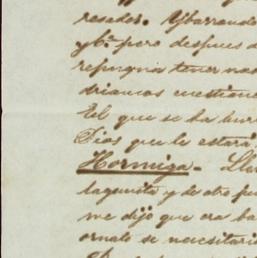 resados. Ybarrando
yba. pero despues d
repugna tener nad
driamos cuestione
El que se ha burl
Dios que le estará
Hormiga. Lla
lagunita y de otro pu
me dijo que era ba
ornato se necesitaria